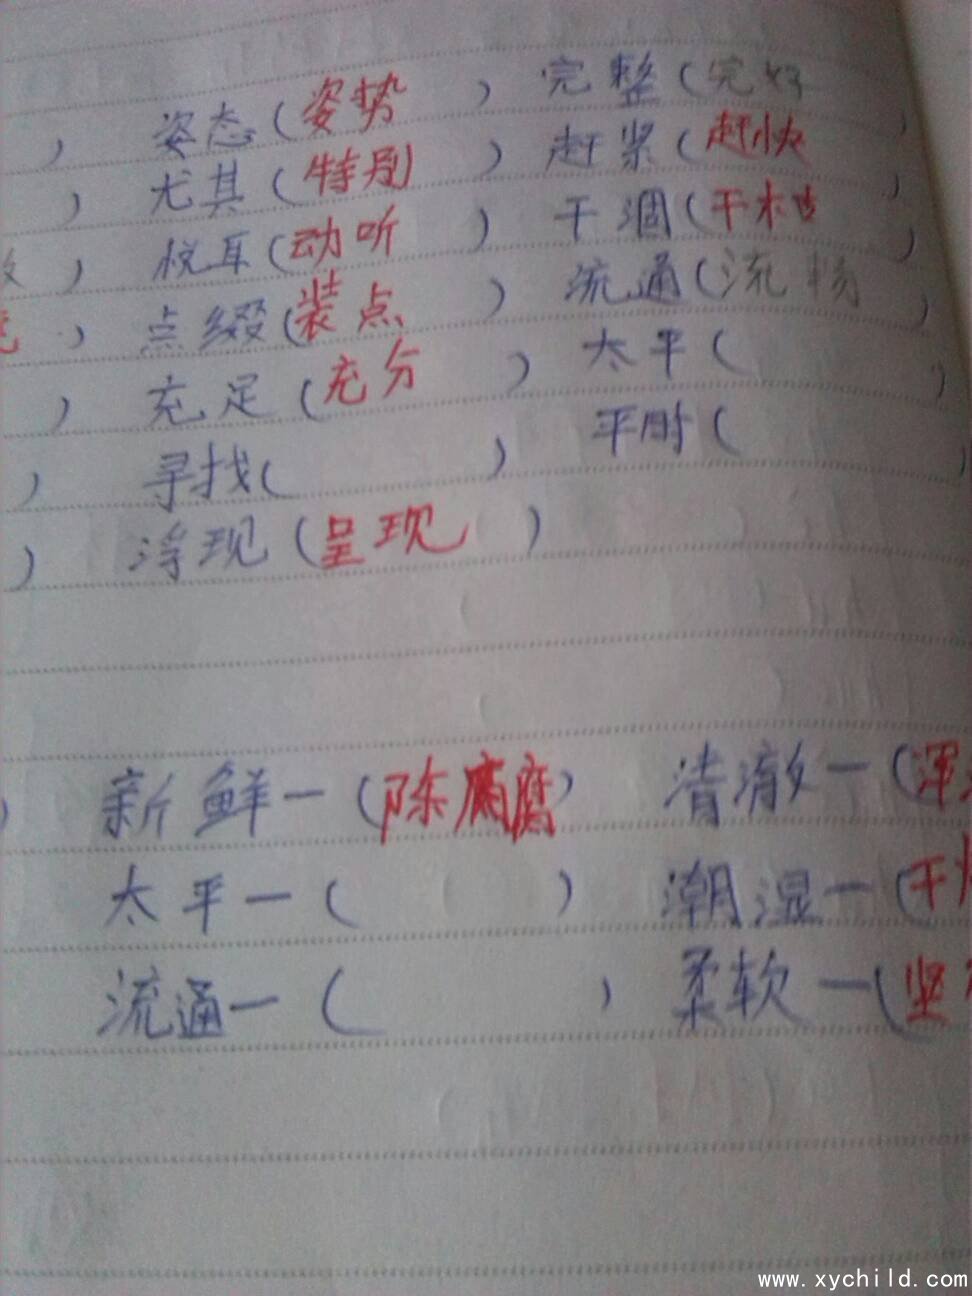 ) 姿态(姿势 ) 完整(完好 )
) 尤其(特别 ) 赶紧(赶快 )
) 悦耳(动听 ) 干涸(干枯 )
) 点缀(装点 ) 流通(流畅 )
) 充足(充分 ) 太平( )
) 寻找( ) 平时( )
) 浮现(呈现 )
) 新鲜一(陈腐腐) 清澈一(浑
太平一( ) 潮湿一(干
流通一( ) 柔软一(坚
www.xychild.com